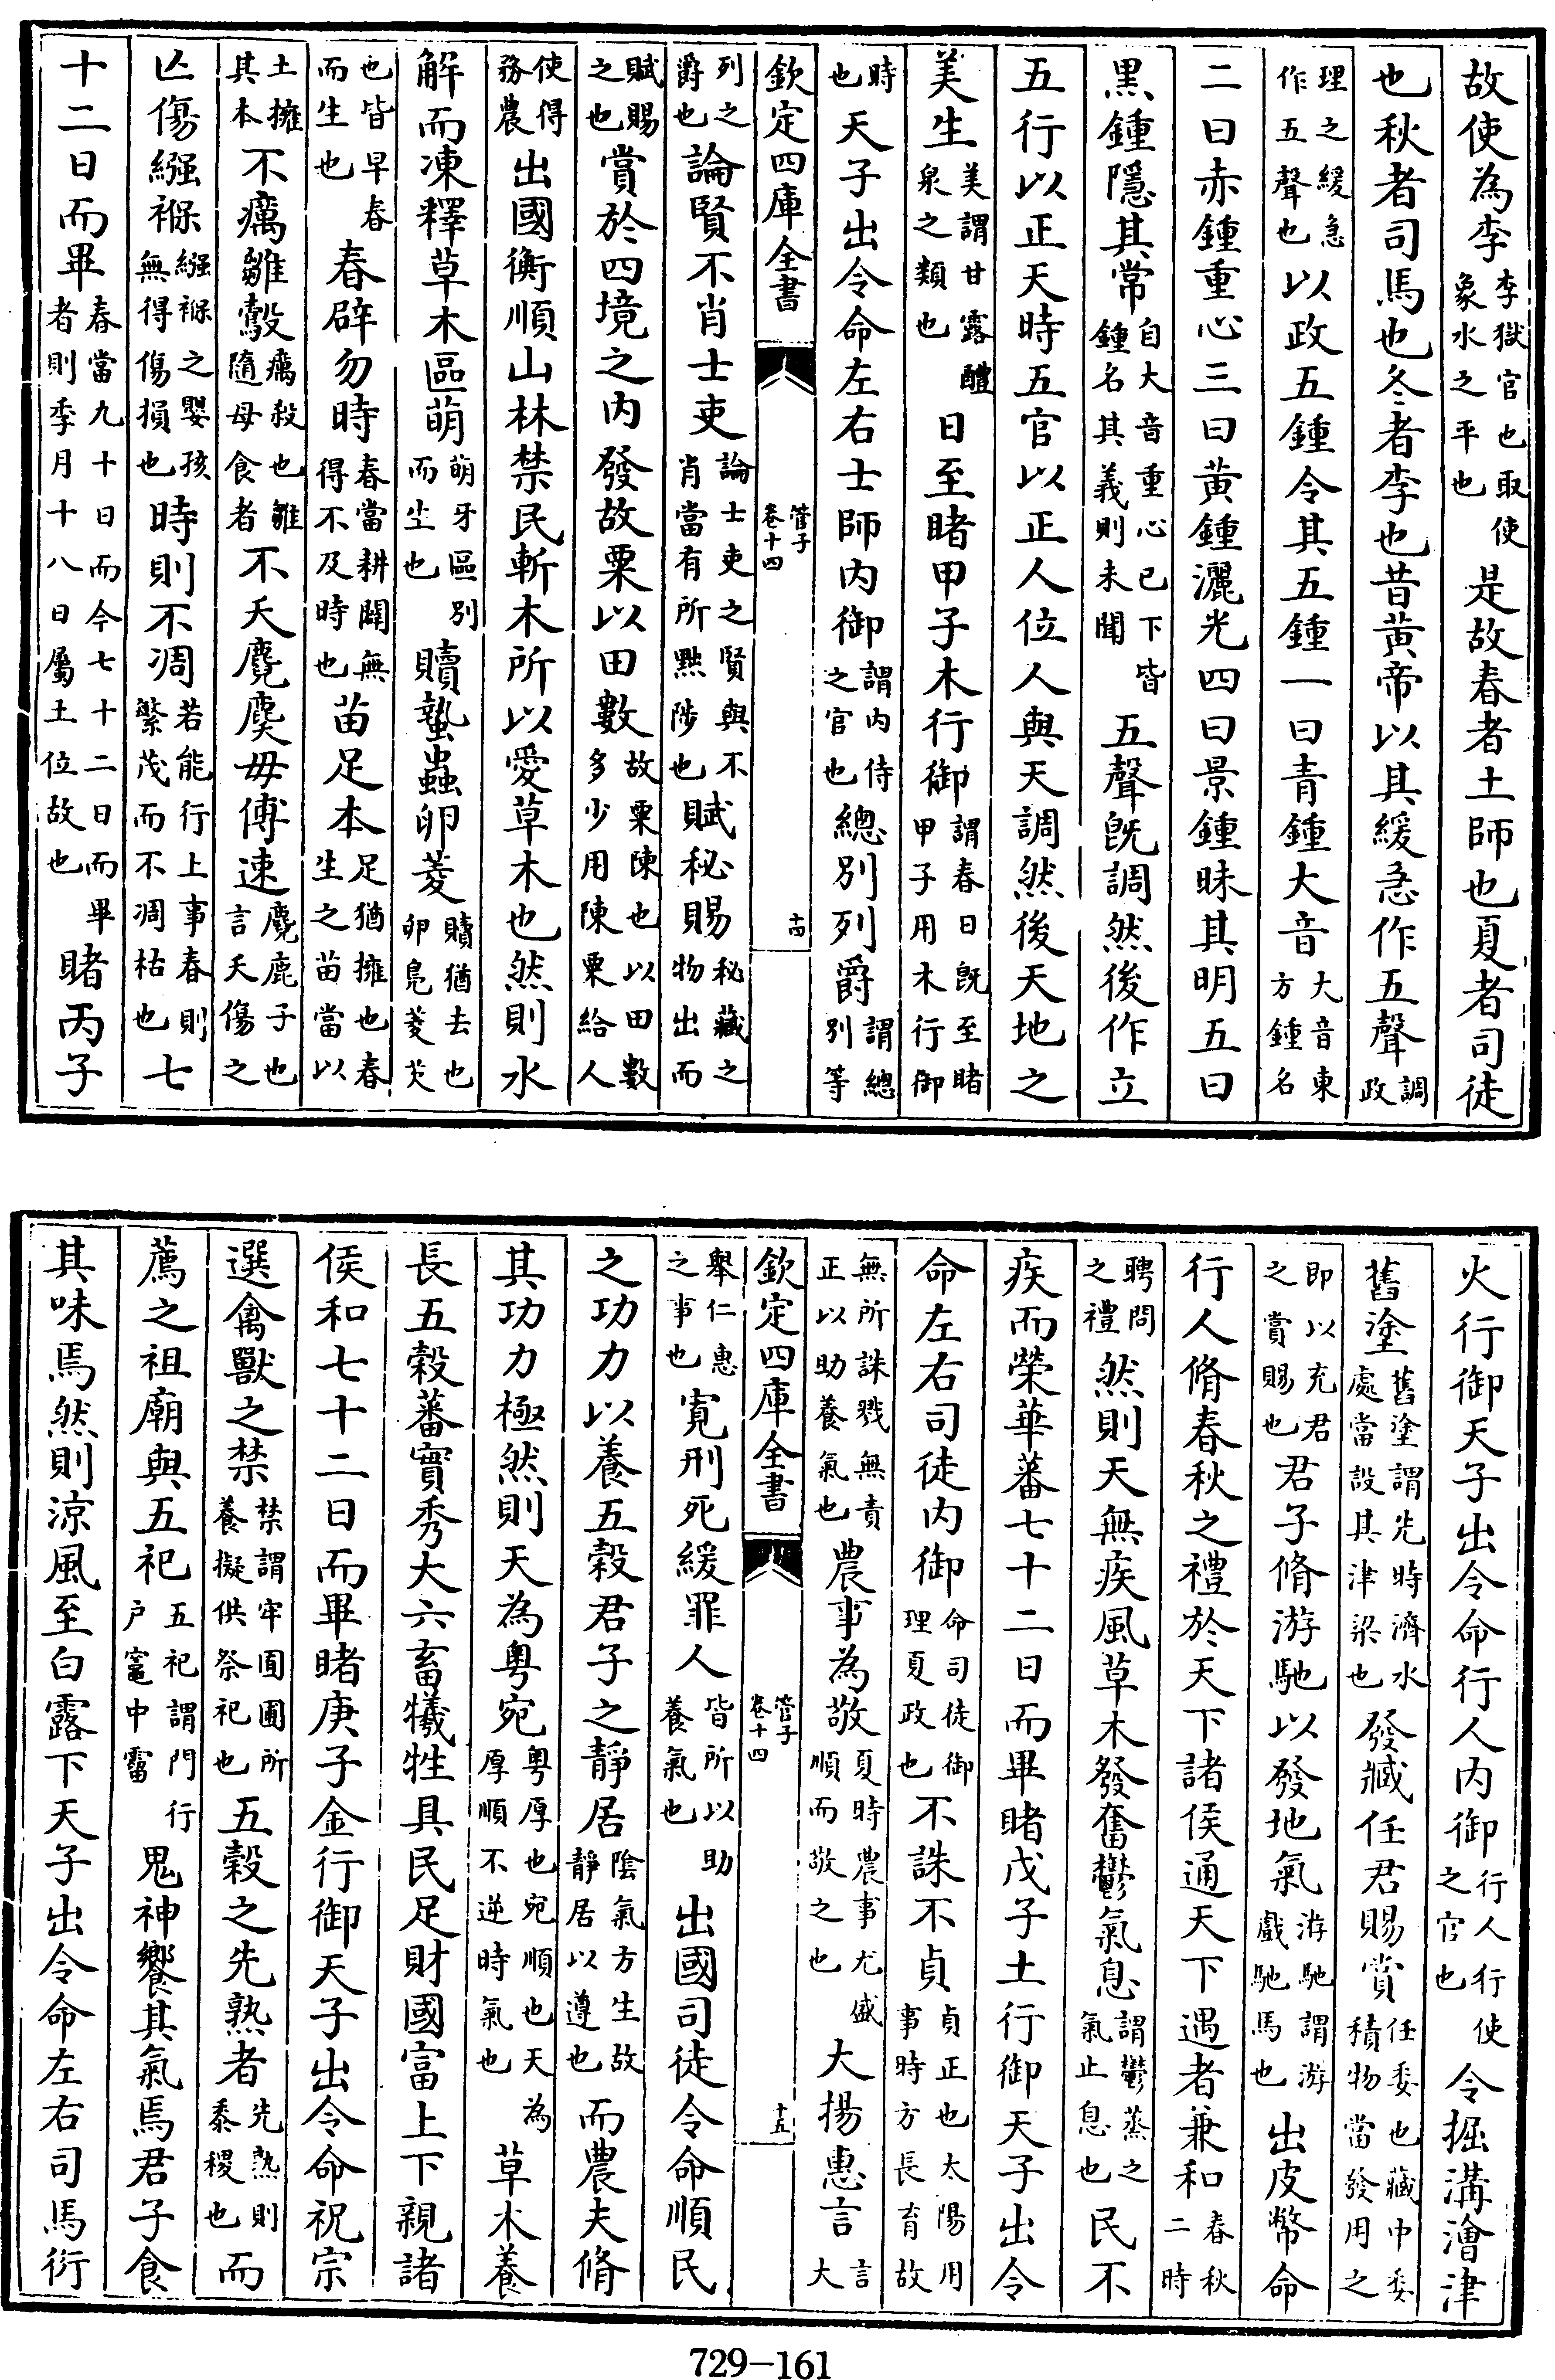 故使為李李獄官也取使象水之平也是故春者土師也夏者司徒
也秋者司馬也冬者李也昔黄帝以其緩急作五聲調政
理之緩急作五聲也以政五鍾令其五鍾一曰青鍾大音大音東方鍾名
二曰赤鍾重心三曰黄鍾灑光四曰景鍾昧其明五曰
黒鍾隱其常自大音重心已下皆鍾名其義則未聞五聲既調然後作立
五行以正天時五官以正人位人與天調然後天地之
美生美謂甘露醴泉之類也日至睹甲子木行御謂春日既至睹甲子用木行御
時也天子出令命左右士師内御謂内侍之官也總別列爵謂總別等
欽定四庫全書
管子
卷十四
十四
列之爵也論賢不肖士吏論士吏之賢與不肖當有所㸃陟也賦秘賜秘藏之物出而
賦賜之也賞於四境之内發故粟以田數故粟陳也以田數多少用陳粟給人
使得務農出國衡順山林禁民斬木所以愛草木也然則水
解而凍釋草木區萌萌牙區別而生也贖蟄蟲卵菱贖猶去也卵鳧菱芡
也皆早春而生也春辟勿時春當耕闢無得不及時也苗足本足猶擁也春生之苗當以
土擁其本不癘雛鷇癘殺也雛隨母食者不夭麑麌毋傅速麑鹿子也言夭傷之
亾傷繦褓繦褓之嬰孩無得傷損也時則不凋若能行上事春則繁茂而不凋枯也七
十二日而畢春當九十日而今七十二日而畢者則季月十八日屬土位故也睹丙子
火行御天子出令命行人内御行人行使之官也令掘溝澮津
舊塗舊塗謂先時濟水處當設其津梁也發臧任君賜賞任委也藏中委積物當發用之
即以充君之賞賜也君子脩游馳以發地氣游馳謂游戲馳馬也出皮幣命
行人脩春秋之禮於天下諸侯通天下遇者兼和春秋二時
聘問之禮然則天無疾風草木發奮鬱氣息謂鬱蒸之氣止息也民不
疾而榮華蕃七十二日而畢睹戊子土行御天子出令
命左右司徒内御命司徒御理夏政也不誅不貞貞正也太陽用事時方長育故
無所誅戮無責正以助養氣也農事為敬夏時農事尤盛順而敬之也大揚惠言言大
欽定四庫全書
管子
卷十四
十五
舉仁惠之事也寛刑死緩罪人皆所以助養氣也出國司徒令命順民
之功力以養五穀君子之靜居陰氣方生故靜居以遵也而農夫脩
其功力極然則天為粤宛粤厚也宛順也天為厚順不逆時氣也草木養
長五穀蕃實秀大六畜犧牲具民足財國富上下親諸
侯和七十二日而畢睹庚子金行御天子出令命祝宗
選禽獸之禁禁謂牢圃所養擬供祭祀也五穀之先熟者先熟則黍稷也而
薦之祖廟與五祀五祀謂門行户竈中霤鬼神饗其氣焉君子食
其味焉然則涼風至白露下天子出令命左右司馬衍
729-161